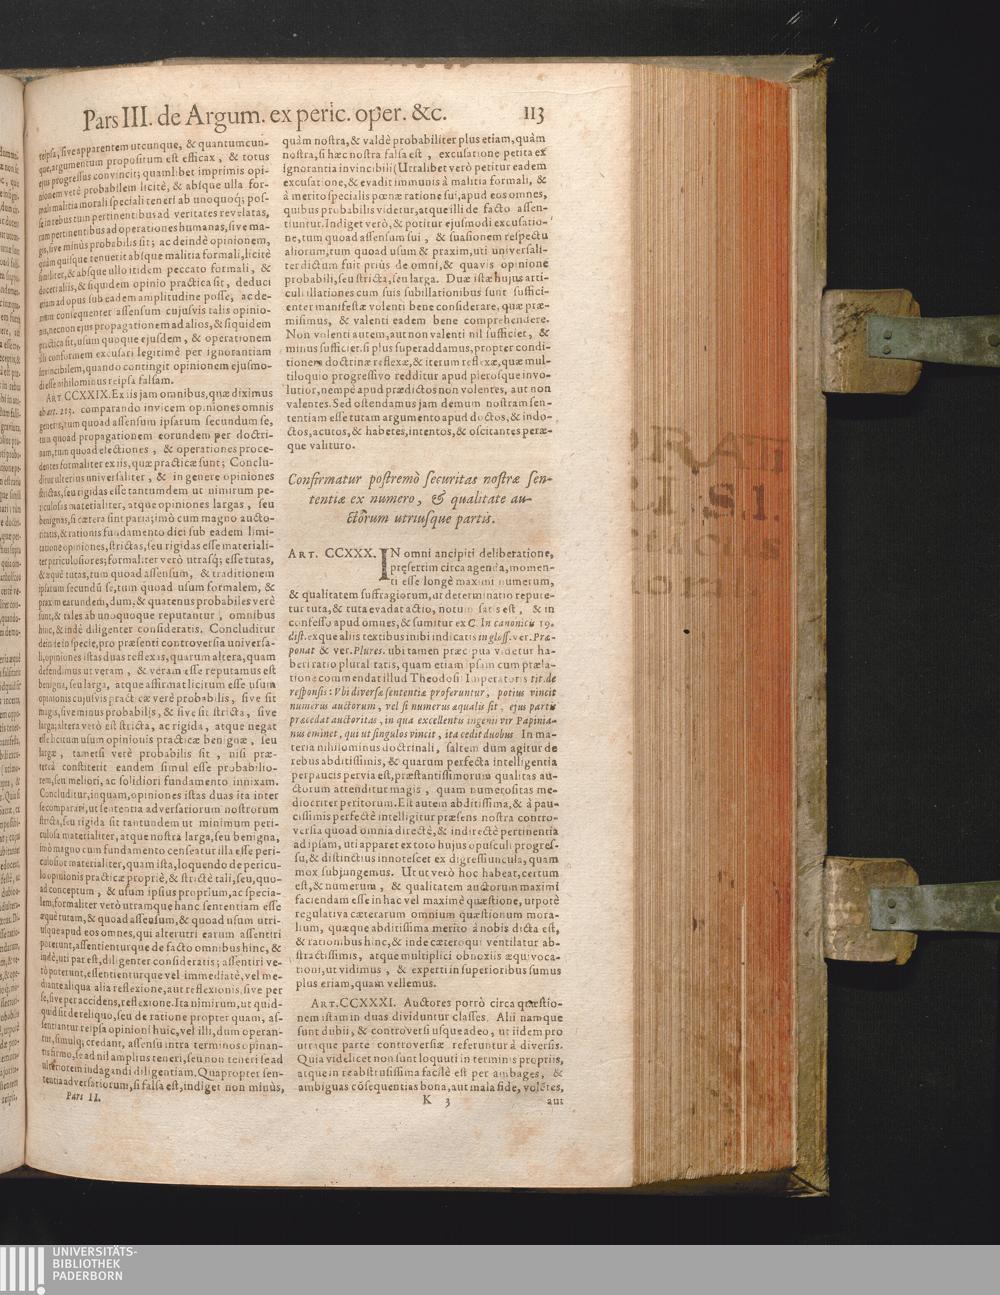 Pars III. de Argum. ex peric. oper. &c. 113
reipsa, sive apparentem utcunque, & quantumcun-
que, argumentum propositum est efficax, & totus
ejus progressus convincit; quamlibet imprimis opi-
nionem verè probabilem licitè, & absque ulla for-
mali malitia morali speciali teneri ab unoquoq; pos-
se in rebus tum pertinentibus ad veritates revelatas,
tum pertinentibus ad operationes humanas, sive ma-
gis, sive minùs probabilis sit; ac deindè opinionem,
quàm quisque tenuerit absque malitia formali, licitè
similiter, & absque ullo itidem peccato formali, &
doceri aliis, & siquidem opinio practica sit, deduci
etiam ad opus sub eadem amplitudine posse, ac de-
mum consequenter assensum cujusvis talis opinio-
nis, necnon ejus propagationem ad alios, & siquidem
practica sit, usum quoque ejusdem, & operationem
illi conformem excusari legitimè per ignorantiam
invincibilem, quando contingit opinionem ejusmo-
di esse nihilominus reipsa falsam.
ART. CCXXIX. Ex iis jam omnibus, quæ diximus
ab art. 213. comparando invicem opiniones omnis
generis, tum quoad assensum ipsarum secundum se,
tum quoad propagationem eorundem per doctri-
nam, tum quoad electiones, & operationes proce-
dentes formaliter ex iis, quæ practicæ sunt; Conclu-
ditur ulterius universaliter, & in genere opiniones
strictas, seu rigidas esse tantumdem ut nimirum pe-
riculosas materialiter, atque opiniones largas, seu
benignas, si cætera sint paria; imò cum magno aucto-
ritatis, & rationis fundamento dici sub eadem limi-
tatione opiniones, strictas, seu rigidas esse materiali-
ter periculosiores; formaliter verò utrasq; esse tutas,
& æquè tutas, tum quoad assensum, & traditionem
ipsarum secundū se, tum quoad usum formalem, &
praxim earundem, dum, & quatenus probabiles verè
sunt, & tales ab unoquoque reputantur, omnibus
hinc, & indè diligenter consideratis. Concluditur
deinde in specie, pro præsenti controversia universa-
li, opiniones istas duas reflexas, quarum altera, quam
defendimus ut veram, & veram esse reputamus est
benigna, seu larga, atque affirmat licitum esse usum
opinionis cujusvis practicæ verè probabilis, sive sit
magis, sive minus probabilis, & sive sit stricta, sive
larga; altera verò est stricta, ac rigida, atque negat
esse licitum usum opinionis practicæ benignæ, seu
largæ, tametsi verè probabilis sit, nisi præ-
tereà constiterit eandem simul esse probabilio-
rem, seu meliori, ac solidiori fundamento innixam.
Concluditur, inquam, opiniones istas duas ita inter
se comparari, ut sententia adversariorum nostrorum
stricta, seu rigida sit tantundem ut minimum peri-
culosa materialiter, atque nostra larga, seu benigna,
imò magno cum fundamento censeatur illa esse peri-
culosior materialiter, quam ista, loquendo de pericu-
lo opinionis practicæ propriè, & strictè tali, seu, quo-
ad conceptum, & usum ipsius proprium, ac specia-
lem, formaliter verò utramque hanc sententiam esse
æquè tutam, & quoad assensum, & quoad usum utri-
usque apud eos omnes, qui alterutri earum assentiri
poterunt, assentienturque de facto omnibus hinc, &
indè, uti par est, diligenter consideratis; assentiri ve-
rò poterunt, assentienturque vel immediatè, vel me-
diante aliqua alia reflexione, aut reflexionis, sive per
se, sive per accidens, reflexione. Ita nimirum, ut quid-
quid sit de reliquo, seu de ratione propter quam, as-
sentiantur reipsa opinioni huic, vel illi, dum operan-
tur, simulq; credant, assensu intra terminos opinan-
tis firmo, se ad nil amplius teneri, seu non teneri se ad
ulteriorem indagandi diligentiam. Quapropter sen-
tentia adversariorum, si falsa est, indiget non minùs,
Pars II.
quàm nostra, & valdè probabiliter plus etiam, quàm
nostra, si hæc nostra falsa est, excusatione petita ex
ignorantia invincibili (Utralibet verò petitur eadem
excusatione, & evadit immunis à malitia formali, &
à merito specialis pœnæ ratione sui, apud eos omnes,
quibus probabilis videtur, atque illi de facto assen-
tiuntur. Indiget verò, & potitur ejusmodi excusatio-
ne, tum quoad assensum sui, & suasionem respectu
aliorum, tum quoad usum & praxim, uti universali-
ter dictum fuit priùs de omni, & quavis opinione
probabili, seu stricta, seu larga. Duæ istæ hujus arti-
culi illationes cum suis subillationibus sunt suffici-
enter manifestæ volenti bene considerare, quæ præ-
misimus, & valenti eadem bene comprehendere.
Non volenti autem, aut non valenti nil sufficiet, &
minus sufficiet, si plus superaddamus, propter condi-
tionem doctrinæ reflexæ, & iterum reflexæ, quæ mul-
tiloquio progressivo redditur apud plerosque invo-
lutior, nempè apud prædictos non volentes, aut non
valentes. Sed ostendamus jam demum nostram sen-
tentiam esse tutam argumento apud doctos, & indo-
ctos, acutos, & habetes, intentos, & oscitantes peræ-
que valituro.
Confirmatur postremò securitas nostræ sen-
tentiæ ex numero, & qualitate au-
ctorum utriusque partis.
ART. CCXXX. IN omni ancipiti deliberatione,
præsertim circa agenda, momen-
ti esse longè maximi numerum,
& qualitatem suffragiorum, ut determinatio repute-
tur tuta, & tuta evadat actio, notum satis est, & in
confesso apud omnes, & sumitur ex C. In canonicis 19.
dist. ex que aliis textibus inibi indicatis in gloss. ver. Præ-
ponat & ver. Plures. ubi tamen præcipua videtur ha-
beri ratio pluralitatis, quam etiam ipsam cum præla-
tione commendat illud Theodosi Imperatoris tit. de
responsis: Vbi diversæ sententiæ proferuntur, potius vincit
numerus auctorum, vel si numerus æqualis sit, ejus partis
præcedat auctoritas, in qua excellentis ingenii vir Papinia-
nus eminet, qui ut singulos vincit, ita cedit duobus In ma-
teria nihilominus doctrinali, saltem dum agitur de
rebus abditissimis, & quarum perfecta intelligentia
perpaucis pervia est, præstantissimorum qualitas au-
ctorum attenditur magis, quam numerositas me-
diocriter peritorum. Est autem abditissima, & à pau-
cissimis perfectè intelligitur præsens nostra contro-
versia quoad omnia directè, & indirectè pertinentia
ad ipsam, uti apparet ex toto hujus opusculi progres-
su, & distinctius innotescet ex digressiuncula, quam
mox subjungemus. Ut ut verò hoc habeat, certum
est, & numerum, & qualitatem auctorum maximi
faciendam esse in hac vel maximè quæstione, utpotè
regulativa cæterarum omnium quæstionum mora-
lium, quæque abditissima merito à nobis dicta est,
& rationibus hinc, & inde cæteroqui ventilatur ab-
stractissimis, atque multiplici obnoxiis æquivoca-
tioni, ut vidimus, & experti in superioribus sumus
plus etiam, quam vellemus.
ART. CCXXXI. Auctores porrò circa quæstio-
nem istam in duas dividuntur classes. Alii namque
sunt dubii, & controversi usque adeo, ut iidem pro
utraque parte controversiæ referuntur à diversis.
Quia videlicet non sunt loquuti in terminis propriis,
atque in re abstrusissima facilè est per ambages, &
ambiguas cōsequentias bona, aut mala fide, volētes,
K 3 aut
UNIVERSITÄTS-
BIBLIOTHEK
PADERBORN